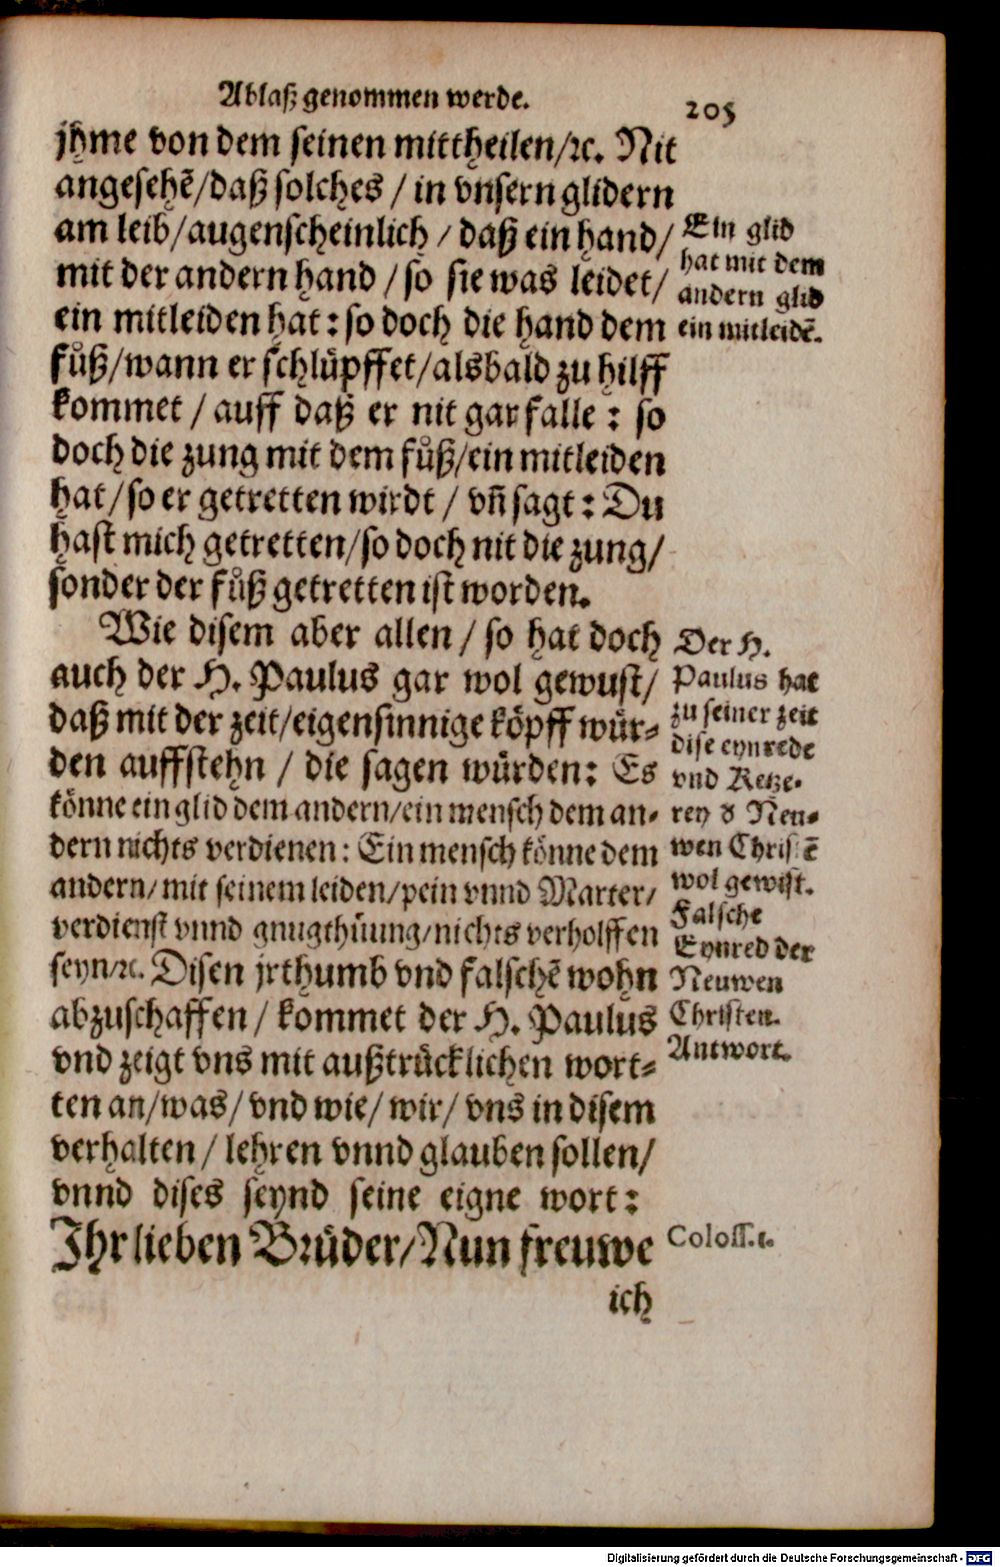 Ablaß genommen werde.
205
jhme von dem seinen mittheilen/ꝛc. Nit
angesehē/daß solches / in vnsern glidern
am leib/augenscheinlich / daß ein hand/
mit der andern hand / so sie was leidet/
ein mitleiden hat : so doch die hand dem
fůß/wann er schlüpffet/alsbald zu hilff
kommet / auff daß er nit gar falle : so
doch die zung mit dem fůß/ein mitleiden
hat/so er getretten wirdt / vñ sagt : Du
hast mich getretten/so doch nit die zung/
sonder der fůß getretten ist worden.
Ein glid
hat mit dem
andern glid
ein mitleidē.
Wie disem aber allen / so hat doch
auch der H. Paulus gar wol gewust/
daß mit der zeit/eigensinnige köpff wür-
den auffstehn / die sagen würden: Es
könne ein glid dem andern/ein mensch dem an-
dern nichts verdienen: Ein mensch könne dem
andern/mit seinem leiden/pein vnnd Marter/
verdienst vnnd gnugthůung/nichts verholffen
seyn/ꝛc. Disen jrthumb vnd falschē wohn
abzuschaffen / kommet der H. Paulus
vnd zeigt vns mit außtrücklichen wort-
ten an/was/ vnd wie/ wir/ vns in disem
verhalten / lehren vnnd glauben sollen/
vnnd dises seynd seine eigne wort:
Ihr lieben Brůder/Nun freuwe
Der H.
Paulus hat
zu seiner zeit
dise eynrede
vnd Ketze-
rey ð Neu-
wen Christē
wol gewist.
Falsche
Eynred der
Neuwen
Christen.
Antwort.
Coloss.1.
ich
Digitalisierung gefördert durch die Deutsche Forschungsgemeinschaft - DFG